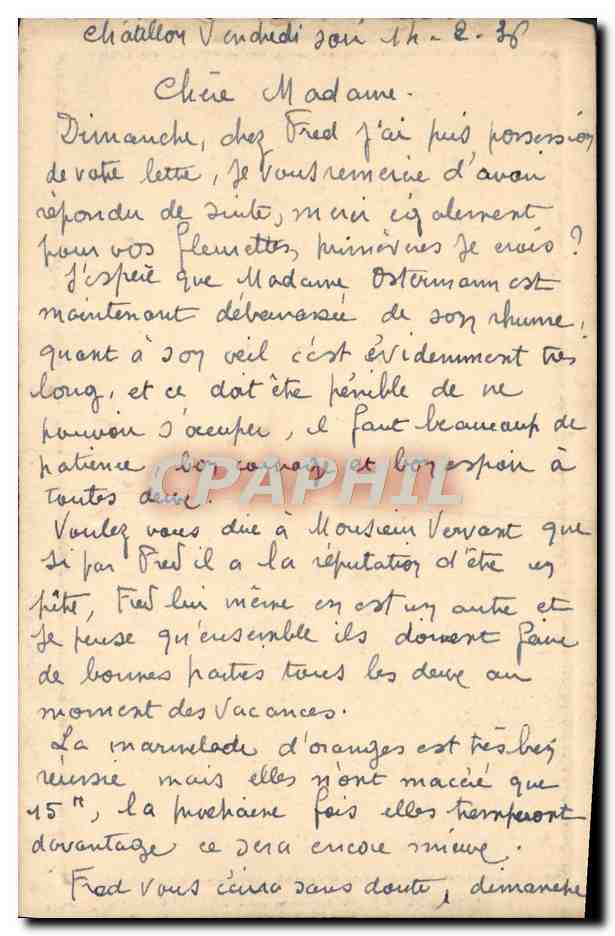 Châtillon Vendredi soir 14-2-36
Chère Madame.
Dimanche, chez Fred j'ai pris possession
de votre lettre, je vous remercie d'avoir
répondu de suite, merci également
pour vos fleurettes, primevères je crois ?
J'espère que Madame Ostermann est
maintenant débarrassée de son rhume,
quant à son œil c'est évidemment très
long, et ce doit être pénible de ne
pouvoir s'occuper, il faut beaucoup de
patience bon courage et bon espoir à
toutes deux.
CPAPHIL
Voulez vous dire à Monsieur Vervant que
si par Fred il a la réputation d'être un
pitre, Fred lui même en est un autre et
je pense qu'ensemble ils doivent faire
de bonnes parties tous les deux au
moment des Vacances.
La marmelade d'oranges est très bien
réussie mais elles n'ont macéré que
15", la prochaine fois elles tremperont
davantage ce sera encore mieux.
Fred vous écrira sans doute, dimanche